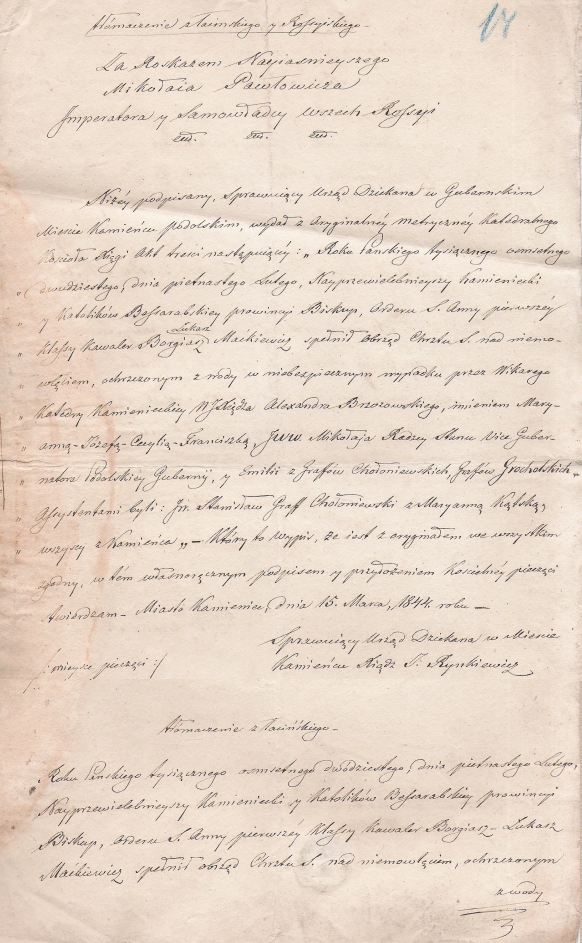 14
tłómaczenie z łacińskiego y Rossyiskiego
Za Roskazem Nayiasnieyszego
Mikołaia Pawłowicza
Imperatora y Samowładcy wszech Rossyi
etd. etd. etd.
Niżéy podpisany, Sprawuiący Urząd Dziekana w Gubernskim
Miescie Kamieńcu podolskim, wydał z Oryginalnéy metrycznéy Katedralnego
Kościoła Xięgi Akt treści następuiącéy: „Roku Pańskiego tysiącznego osmsetnego
„dwudziestego, dnia piętnastego Lutego, Nayprzewielebnieyszy Kamieniecki
„y Katolików Bessarabskiey prowincyi Biskup, Orderu S. Anny pierwszéy
Łukasz
„klassy Kawaler Borgiasz Maćkiewicz spełnił obrząd Chrztu S. nad niemo-
„wlęciem, ochrzczonym z wody w niebezpiecznym wypadku przez Wikarego
„Katedry Kamienieckiey WJXiędza Alexandra Brzozowskiego, imieniem Mary-
„anną-Józefą-Cecylią-Franciszką, Jww. Mikołaja Radzcy Stanu Vice Guber-
„natora Podolskiey Gubernij, y Emilii z Grafów Chołoniewskich, Grafów Grocholskich-
„Assystentami byli: Jw. Stanisław Graff Chołoniewski z Maryanną Kątską,
„wszyscy z Kamieńca„ – Który to wypis, że iest z oryginałem we wszystkim
zgodny, w tém własnoręcznym podpisem y przyłożeniem Kościelnéy pieczęci
twierdzam – Miasto Kamieniec, dnia 15. Marca, 1844. roku –
Sprawuiący Urząd Dziekana w Miescie
/: mieysce pieczęci :/ Kamieńcu Xiądz J. Rynkiewicz
tłómaczenie z Łacińskiego –
Roku Pańskiego tysiącznego osmsetnego dwódziestego, dnia piętnastego Lutego,
Nayprzewielebnieyszy Kamieniecki y Katolików Bessarabskiey prowincyi
Biskup, Orderu S. Anny pierwszéy klassy Kawaler Borgiasz-Łukasz
Maćkiewicz spełnił obrząd Chrztu S. nad niemowlęciem, ochrzczonym
z wody
3